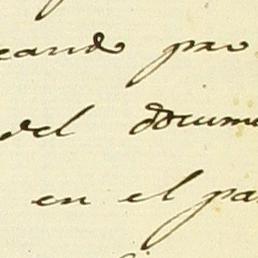 cando pro
del docume
en el pa